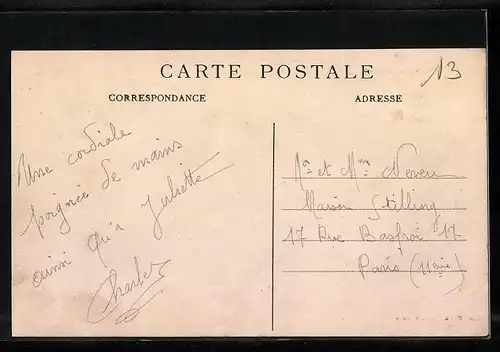 CARTE POSTALE
13
CORRESPONDANCE
ADRESSE
Une cordiale
poignée de mains
ainsi qu'à Juliette
Charles
Mr et Mme Neveu
Maison Stilling
17 Rue Basfroi 17
Paris (11ème)